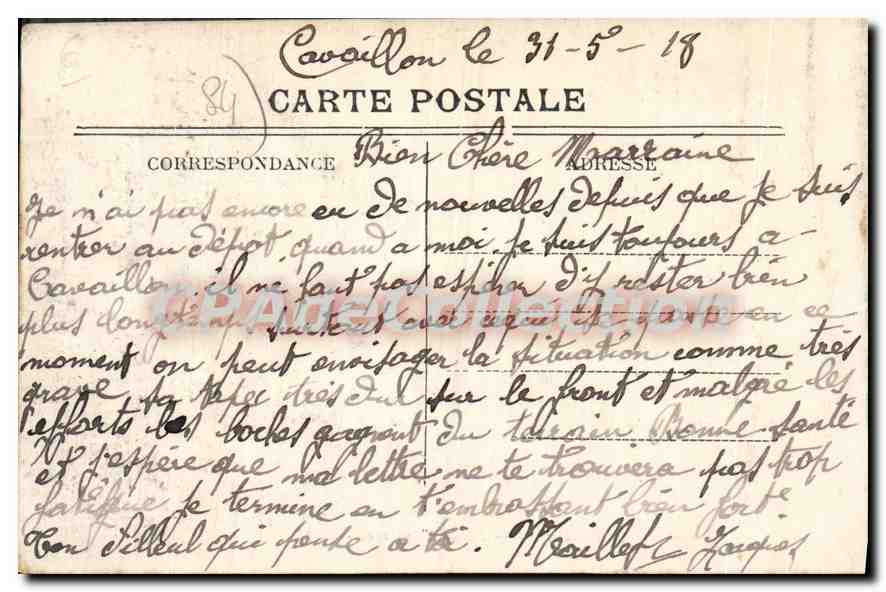 Cavaillon le 31-5-18
84
CARTE POSTALE
Bien Chère Maarraine
CORRESPONDANCE ADRESSE
Je n'ai pas encore eu de nouvelles depuis que je suis
rentrer au dépot, quand a moi je suis toujours a
Cavaillon, il ne faut pas espérer d'y rester bien
plus longtemps surtout avec ce qui se passe en ce
moment on peut envisager la situation comme très
grave sa tape très dur sur le front et malgré les
efforts les boches gagnent du terrain Bonne santé
et j'espère que ma lettre ne te trouvera pas trop
fatigué je termine en t'embrassant bien fort
Ton filleul qui pense a toi. Maillet Jacques
CPA de Collection